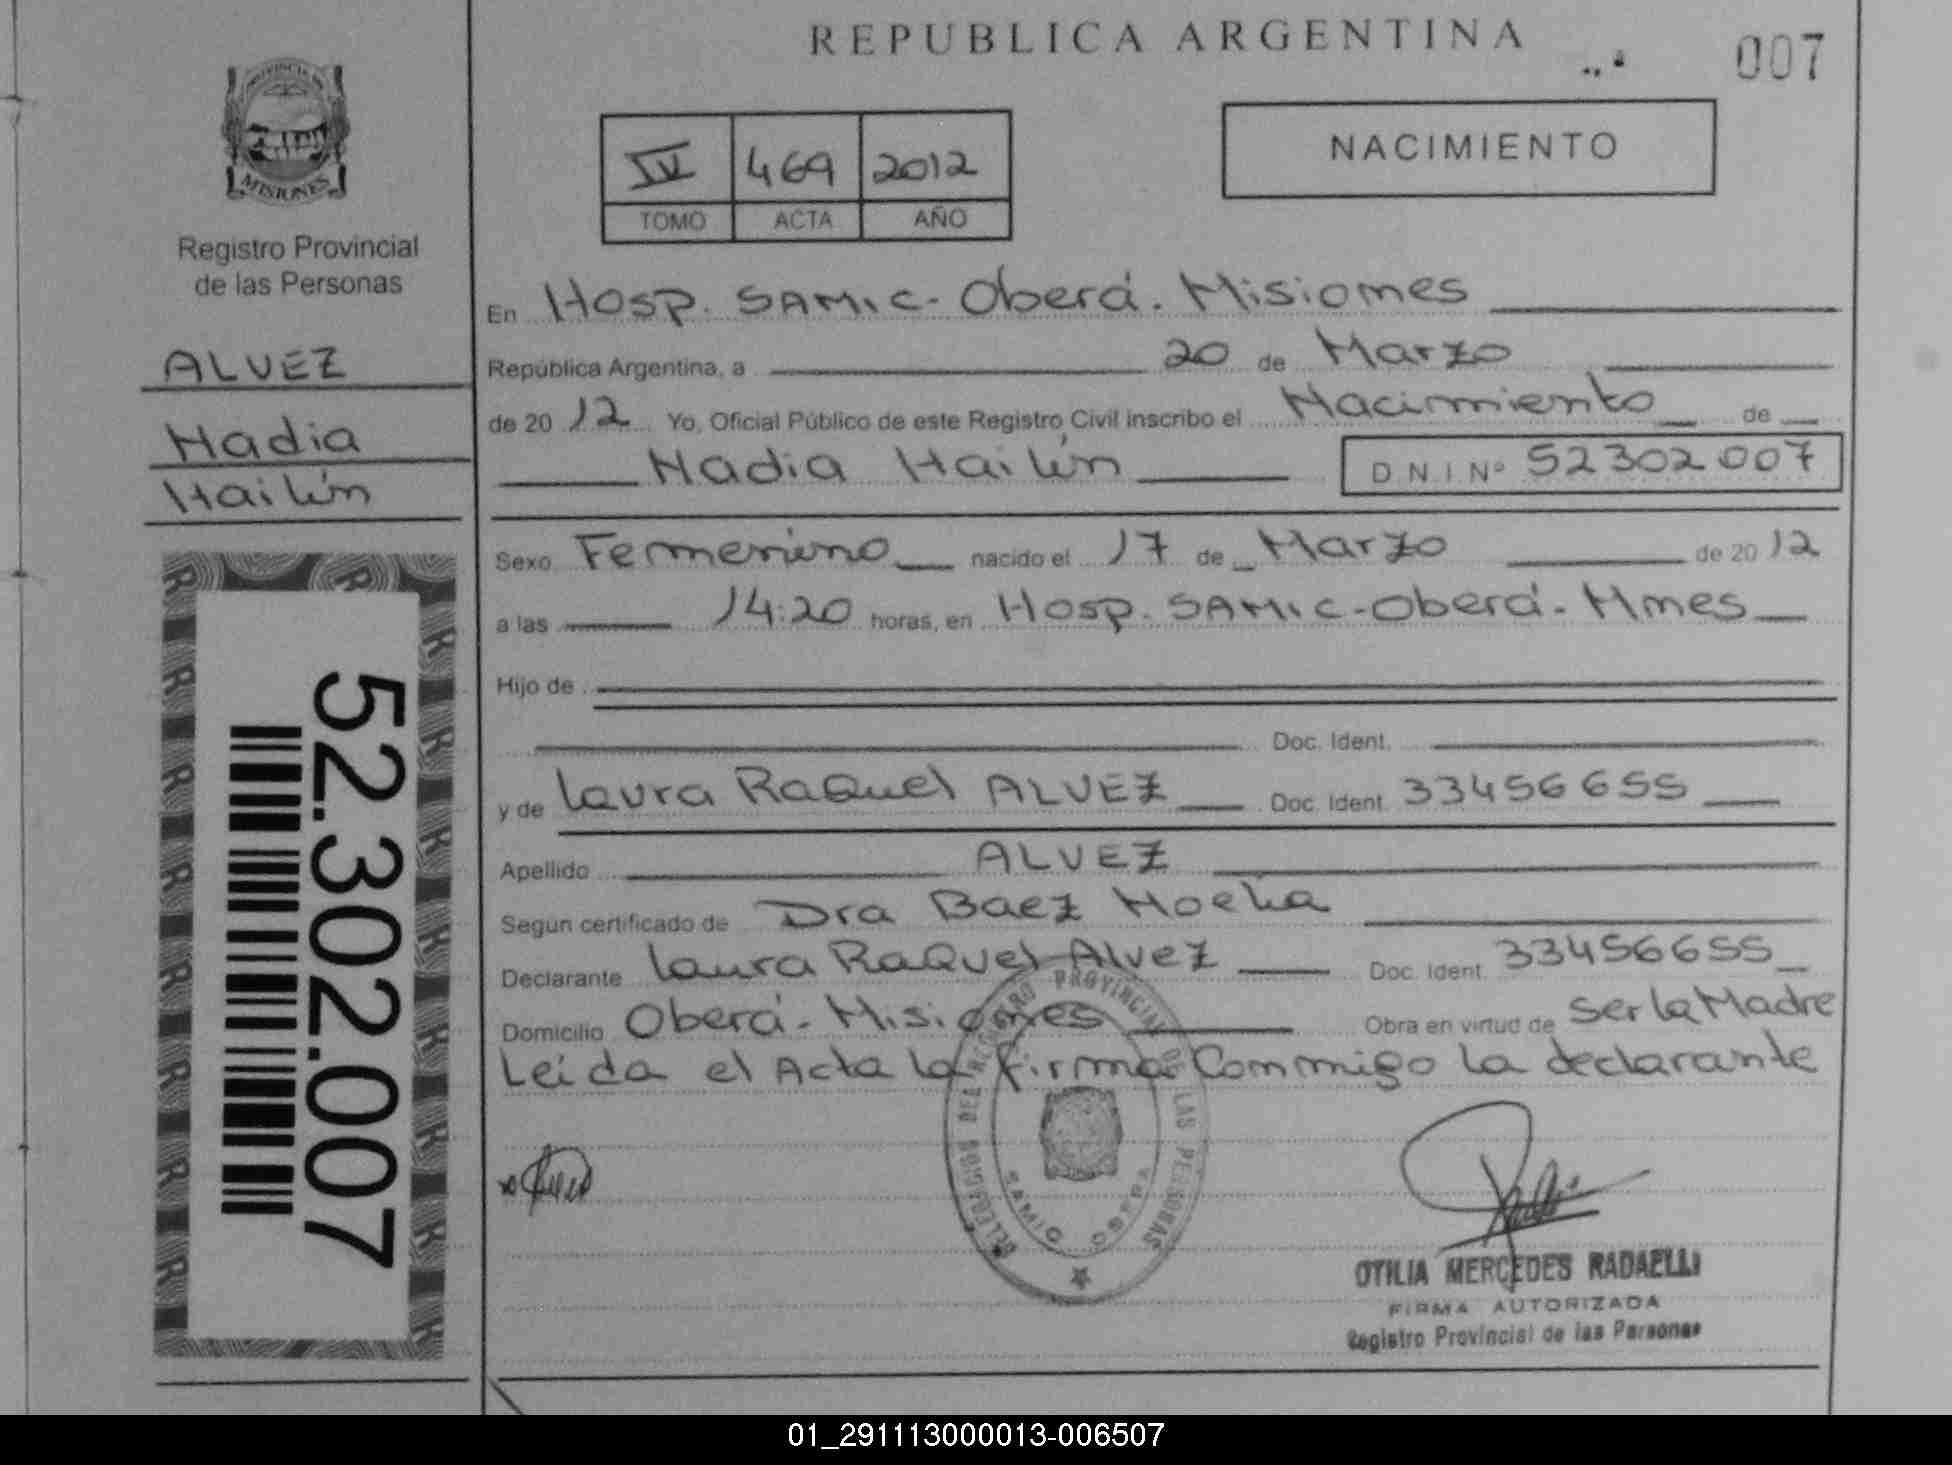 REPUBLICA ARGENTINA
007
PROVINCIA DE
MISIONES
Registro Provincial
de las Personas
ALVEZ
Nadia
Hailín
52.302.007
IV 469 2012
TOMO ACTA AÑO
NACIMIENTO
En Hosp. SAMIC - Oberá. Misiones
República Argentina, a 20 de Marzo
de 20 12 Yo, Oficial Público de este Registro Civil inscribo el Nacimiento de
Nadia Hailín D N I Nº 52302007
Sexo Femenino nacido el 17 de Marzo de 20 12
a las 14:20 horas, en Hosp. SAMIC - Oberá - Mnes
Hijo de
Doc. Ident.
y de Laura Raquel ALVEZ Doc. Ident. 33456655
Apellido ALVEZ
Según certificado de Dra Baez Noelia
Declarante Laura Raquel Alvez Doc. Ident. 33456655
Domicilio Oberá - Misiones Obra en virtud de ser la Madre
Leída el Acta la firma Conmigo la declarante
DELEGACION DEL REGISTRO PROVINCIAL DE LAS PERSONAS
SAMIC OBERA
OTILIA MERCEDES RADAELLI
FIRMA AUTORIZADA
Registro Provincial de las Personas
01_291113000013-006507